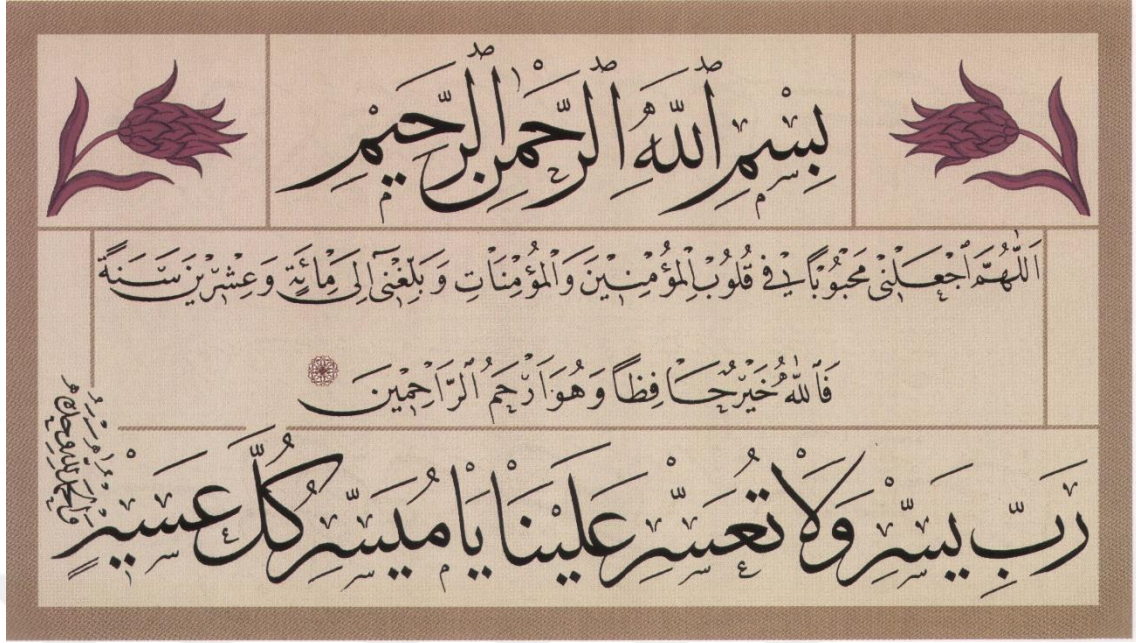 بِسْمِ ٱللّٰهِ ٱلرَّحْمٰنِ ٱلرَّحِيمِ
اَللّٰهُمَّ ٱجْعَلْنِى مَحْبُوبًا فِى قُلُوبِ ٱلْمُؤْمِنِينَ وَٱلْمُؤْمِنَاتِ وَبَلِّغْنِى اِلَى مِائَةٍ وَعِشْرِينَ سَنَةً
فَٱللّٰهُ خَيْرٌ حَافِظًا وَهُوَ اَرْحَمُ ٱلرَّاحِمِينَ
رَبِّ يَسِّرْ وَلَا تُعَسِّرْ عَلَيْنَا يَا مُيَسِّرَ كُلِّ عَسِيرٍ